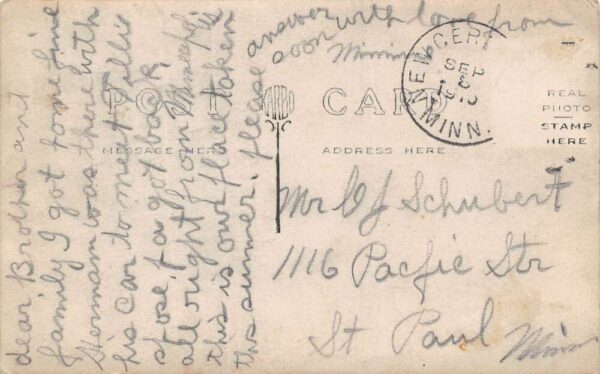 dear Brother and
family I got home fine
Herman was there with
his car to meet Tillie
she got back
all right from
this is our place taken
this summer. please
answer
soon with love from
Minnie
POST CARD
MESSAGE HERE
ADDRESS HERE
NEW GERM
SEP
8
MINN.
REAL
PHOTO
STAMP
HERE
Mr O J Schubert
1116 Pacfic Str
St Paul Minn